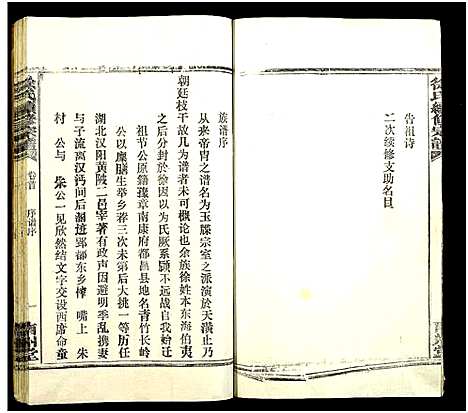 告祖诗
二次续修支助名目
徐氏續修宗譜
南州堂
族谱序
从来帝胄之谱名为玉牒宗室之派演於天潢止乃
朝廷枝干故凡为谱者未可概论也余族徐姓本东海伯夷
之后分封於徐因以为氏厥系顾不远战自我始
祖节公原籍豫章南康府都昌县地名青竹长岭
公以廪膳生举乡荐三次未第后大挑一等历任
湖北汉阳黄陂二邑宰著有政声因避明季乱携男
与子流离汉沔间后蹦迹郢都东乡榨 嘴上 朱
村 公与 朱公一见欣然结文字交设西席命童
徐氏續修宗譜
卷首 序谱序 一